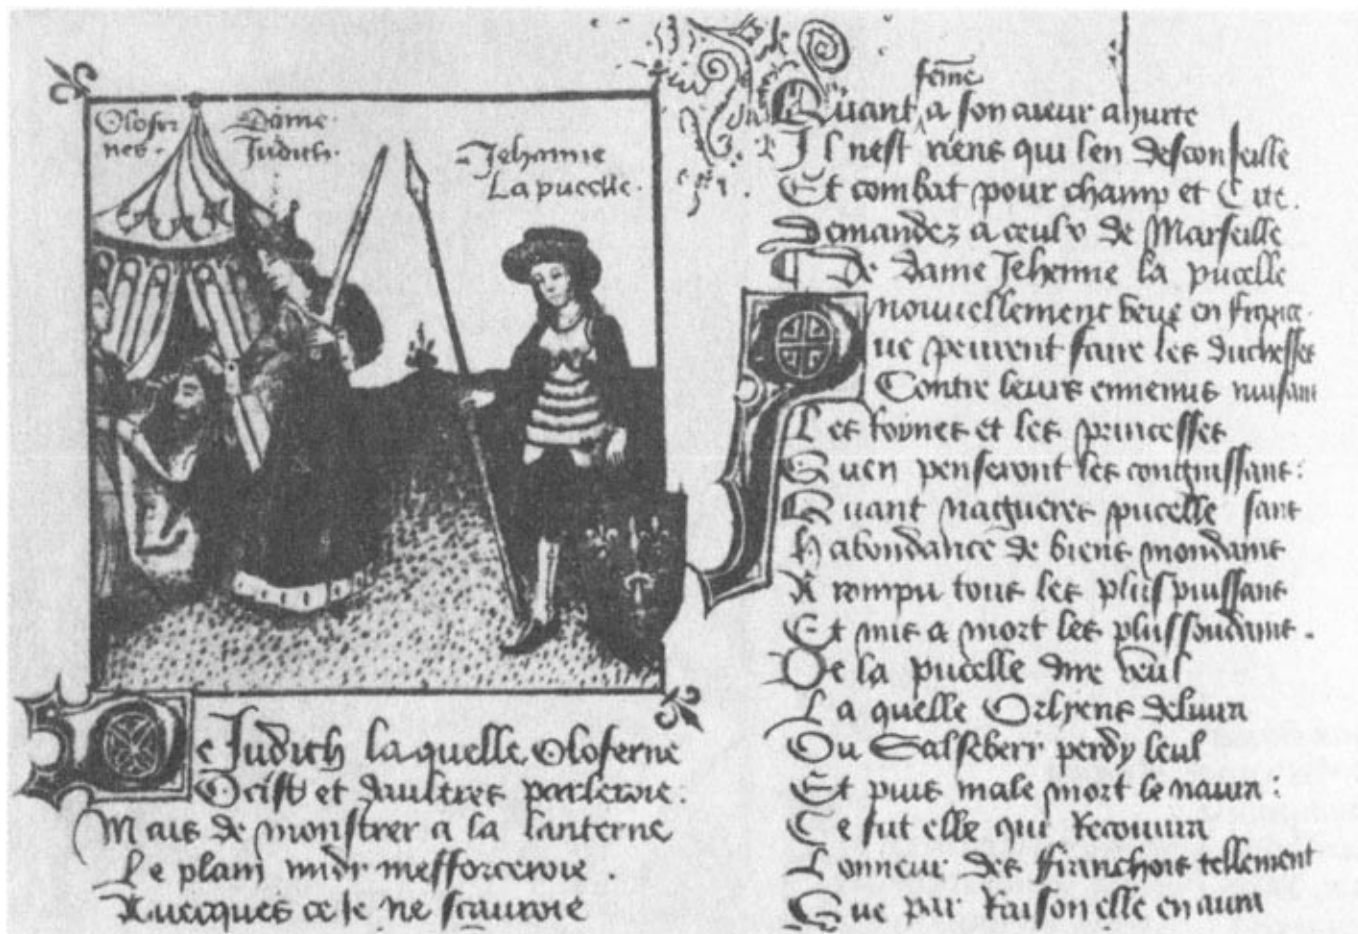 Olofer
nes.
Dame
Judith.
Jehanne
La pucelle.
De Judith la quelle Oloferne
Ocist et daultres parleroie.
Mais de monstrer a la lanterne
Le plain midy mefforceroie.
Avecques ce je ne scauroie
feme
Quant a son aueur ahurte
Il nest riens qui len desconseille
Et combat pour champ et Cite.
Demandez a ceulx de Marseille
De dame Jehenne la pucelle
nouvellement veue en france.
Que peuvent faire les duchesses
Contre leurs ennemis nuisant
Les roynes et les princesses
Quen penseront les congnissans:
Quant nagueres pucelle sans
habondance de biens mondains
A rompu tous les plus puissans
Et mis a mort les plus soudains.
De la pucelle dire veul
La quelle Orlyens deliura
Ou Salseberi perdy leul
Et puis male mort le naura:
Ce fut elle qui Recouura
Lonneur des franchois tellement
Que par Raison elle en aura